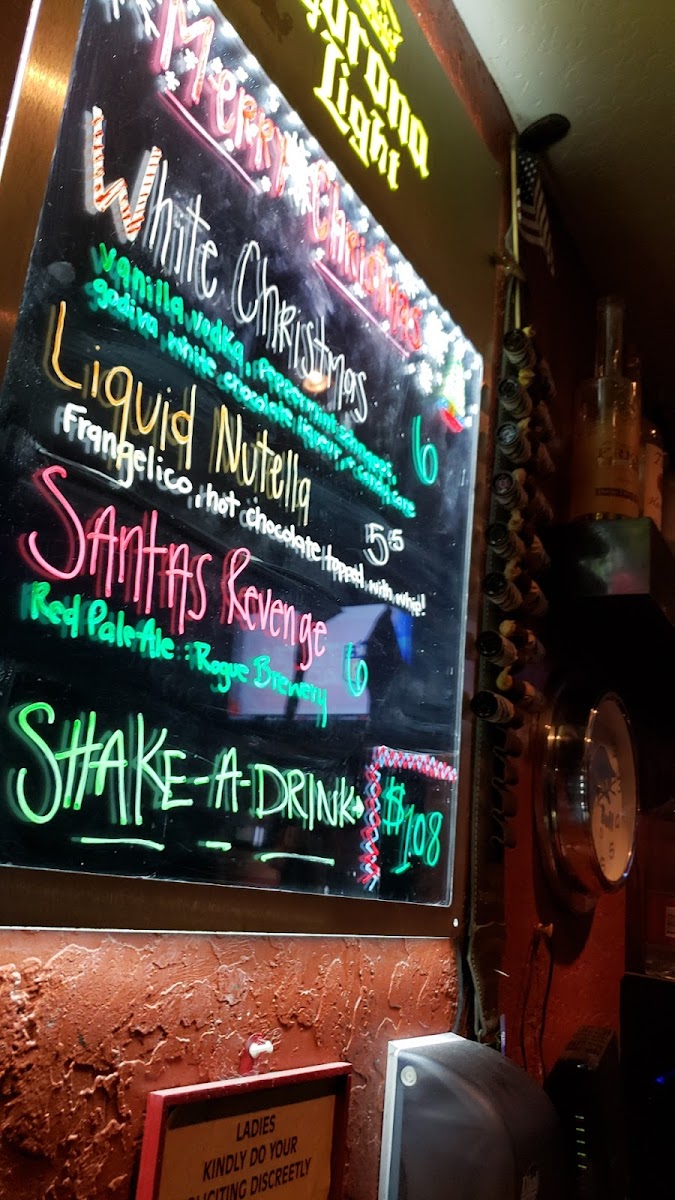 Corona
Light
Merry Christmas
White Christmas
Vanilla vodka, peppermint schnapps,
godiva white chocolate liqueur + candy cane
6
Liquid Nutella
Frangelico, hot chocolate topped with whip!
$5.5
Santas Revenge
Red Pale Ale : Rogue Brewery
6
SHAKE-A-DRINK→
$1.08
LADIES
KINDLY DO YOUR
SOLICITING DISCREETLY